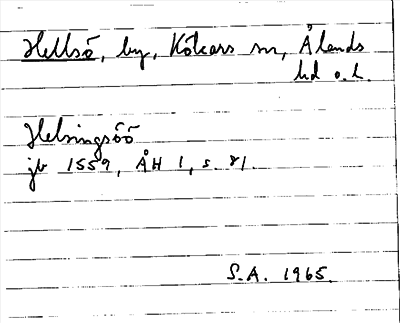 Hellsö, by, Kökars sn, Ålands
hd o.l.
Helsingsöö
jb 1559, ÅH 1, s. 81.
S.A. 1965.